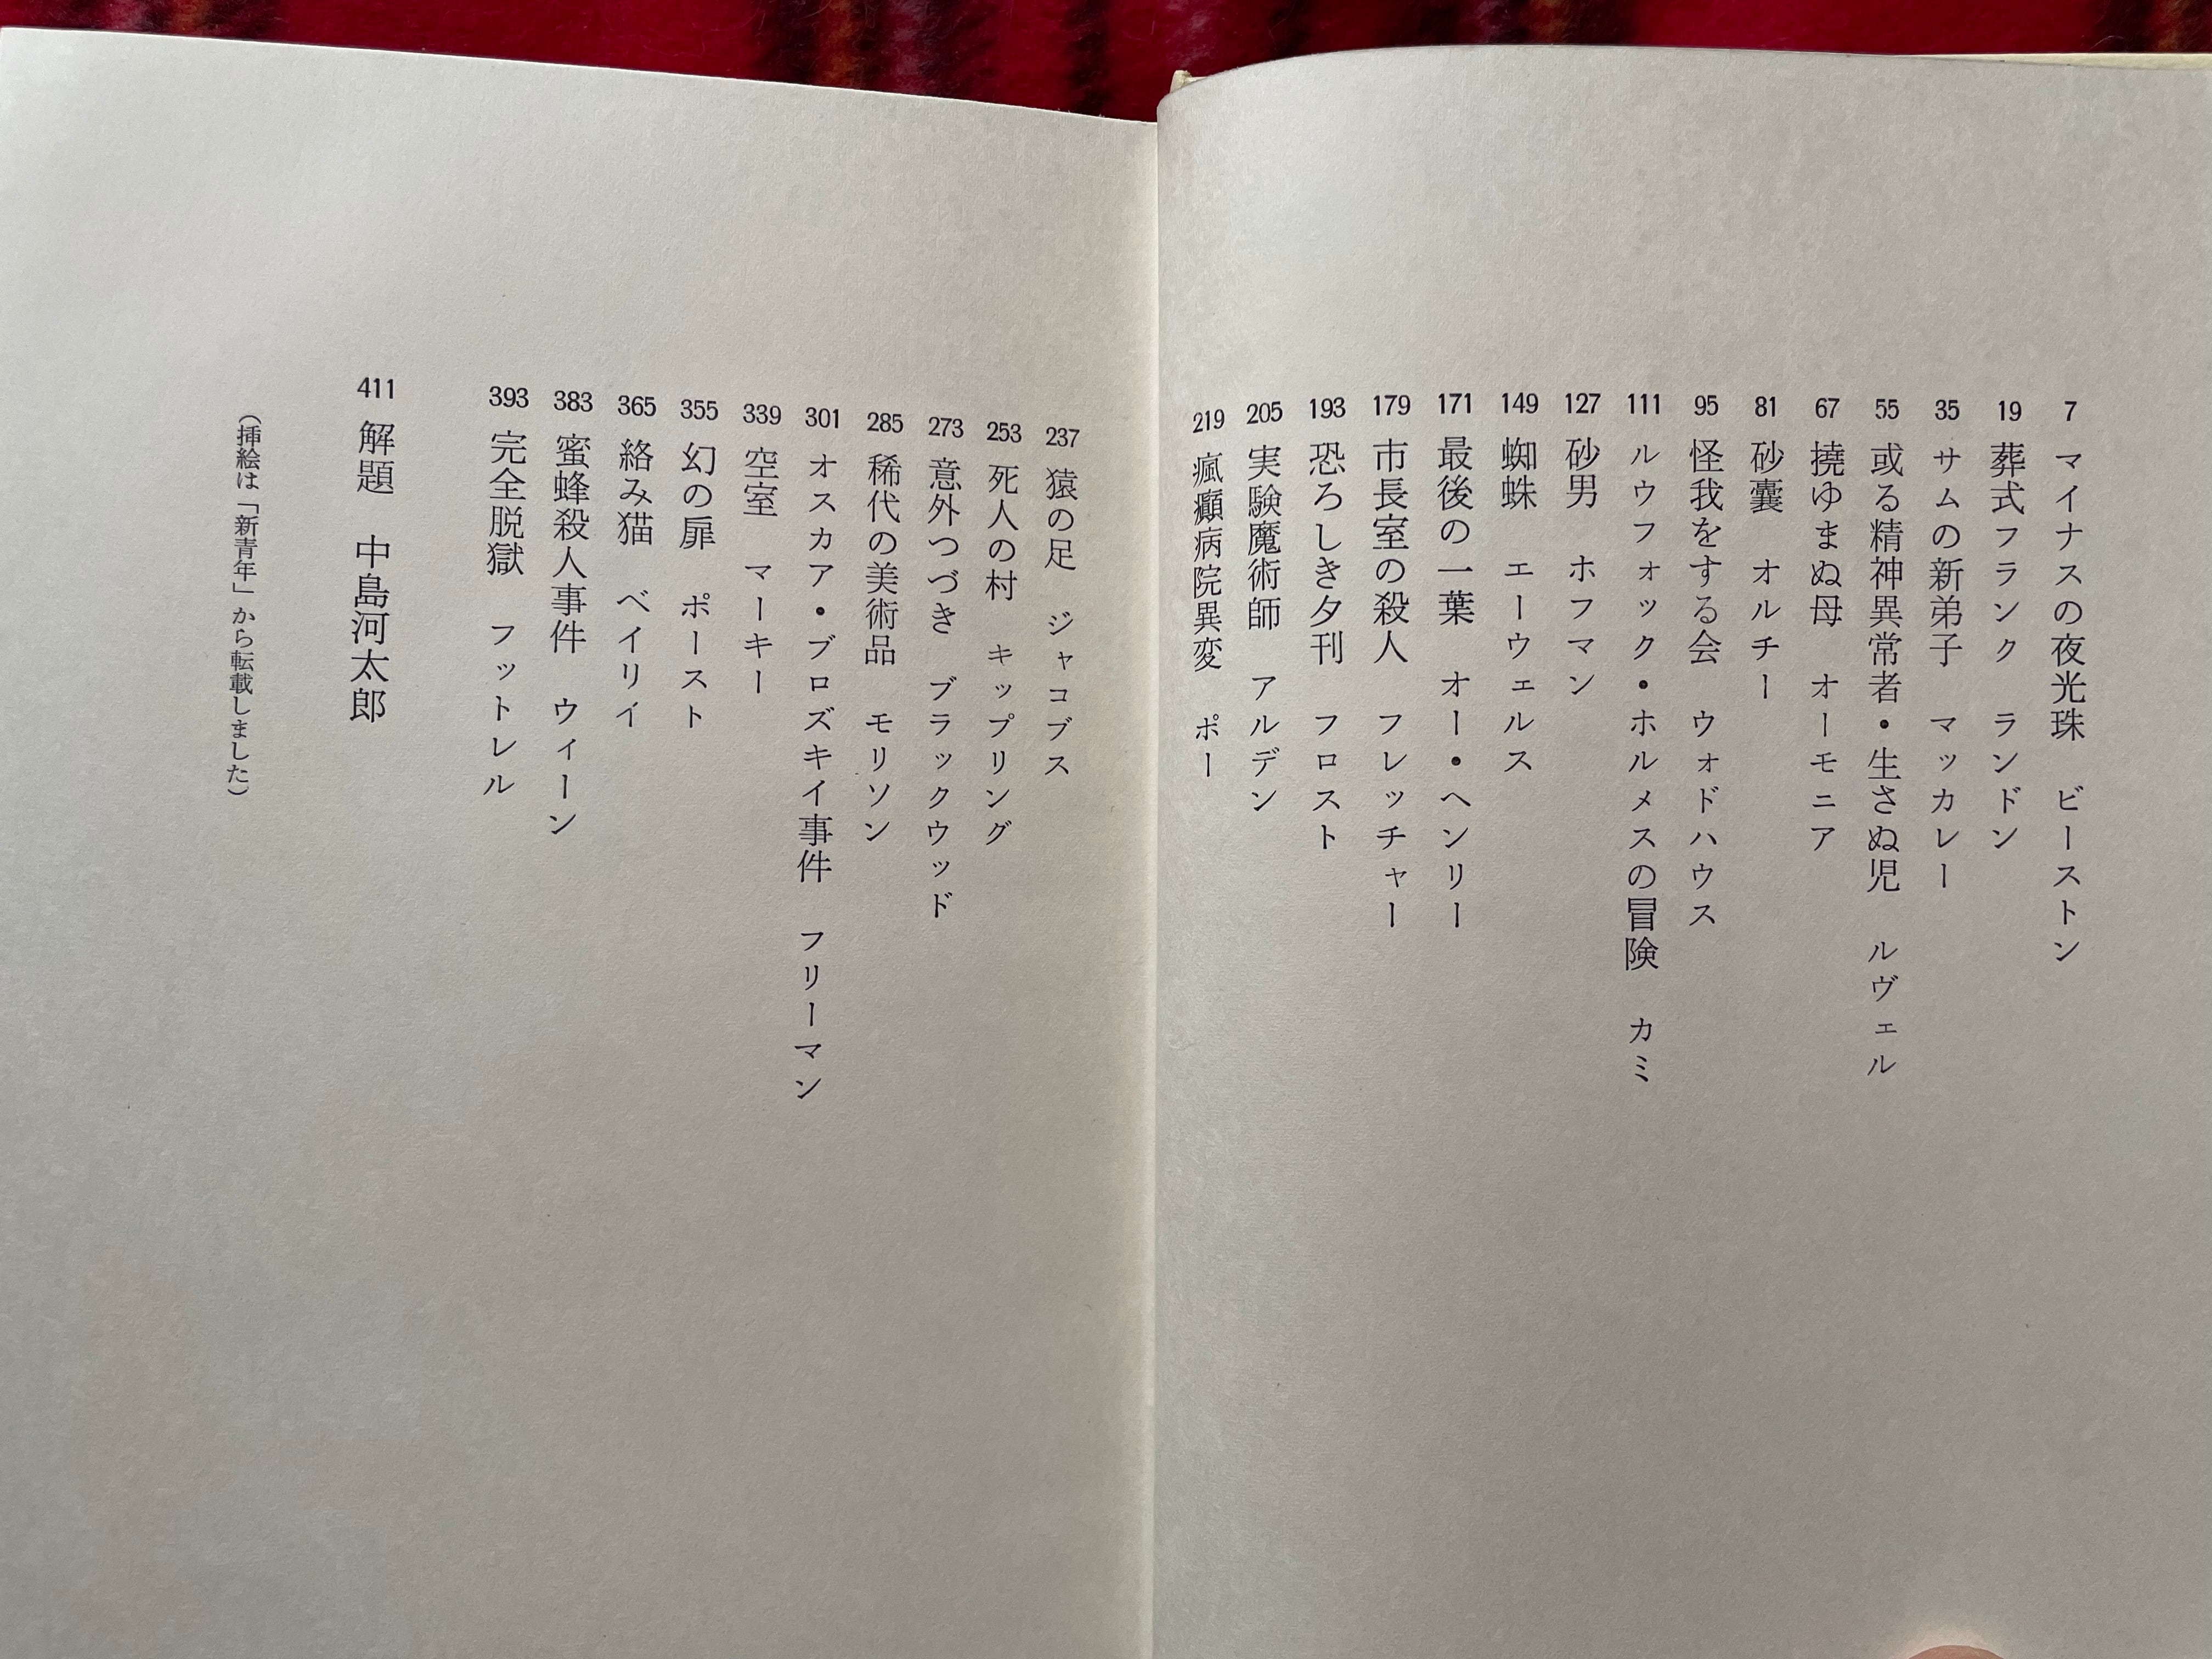 7 マイナスの夜光珠 ビーストン
19 葬式フランク ランドン
35 サムの新弟子 マッカレー
55 或る精神異常者・生さぬ児 ルヴェル
67 撓ゆまぬ母 オーモニア
81 砂嚢 オルチー
95 怪我をする会 ウォドハウス
111 ルウフォック・ホルメスの冒険 カミ
127 砂男 ホフマン
149 蜘蛛 エーウェルス
171 最後の一葉 オー・ヘンリー
179 市長室の殺人 フレッチャー
193 恐ろしき夕刊 フロスト
205 実験魔術師 アルデン
219 瘋癲病院異変 ポー
237 猿の足 ジャコブス
253 死人の村 キップリング
273 意外つづき ブラックウッド
285 稀代の美術品 モリソン
301 オスカア・ブロズキイ事件 フリーマン
339 空室 マーキー
355 幻の扉 ポースト
365 絡み猫 ベイリイ
383 蜜蜂殺人事件 ウィーン
393 完全脱獄 フットレル
411 解題 中島河太郎
（挿絵は「新青年」から転載しました）